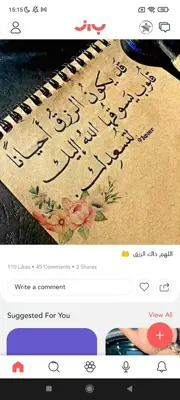 15:15
باز
قد يكون الرزق أحيانًا
قلوب يسوقها الله إليك
لتسعدك
اللهم ذاك الرزق 🤲
110 Likes • 45 Comments • 2 Shares
Write a comment
Suggested For You
View All